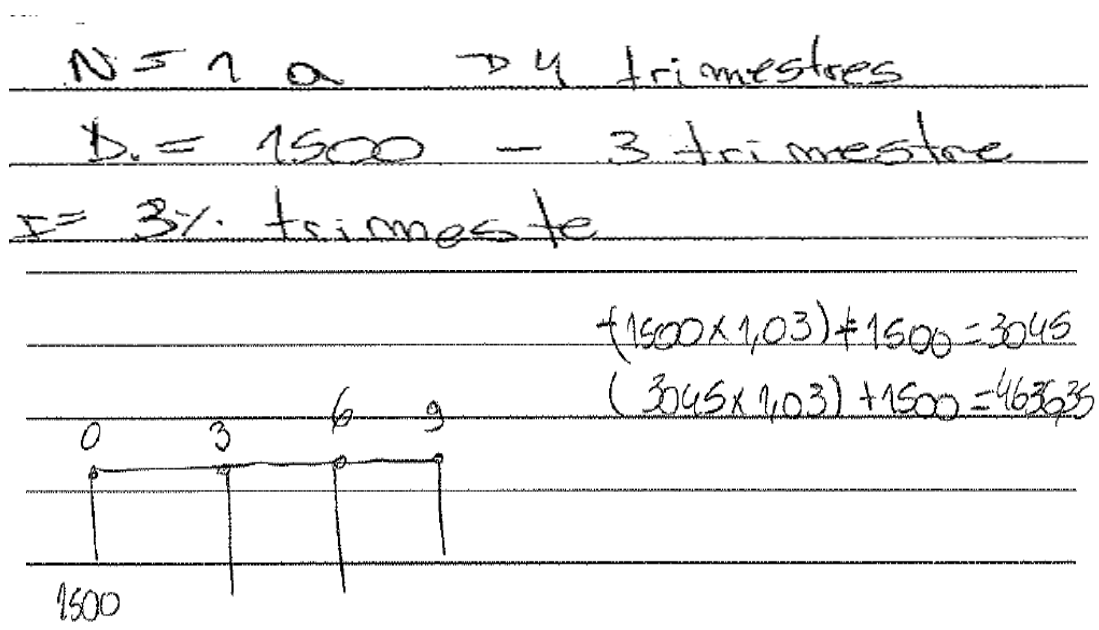 N = 1 a → 4 trimestres
D. = 1500 - 3 trimestre
I = 3%. trimeste
(1500x1,03)+1500=3045
(3045x1,03)+1500=4636,35
0 3 6 9
1500